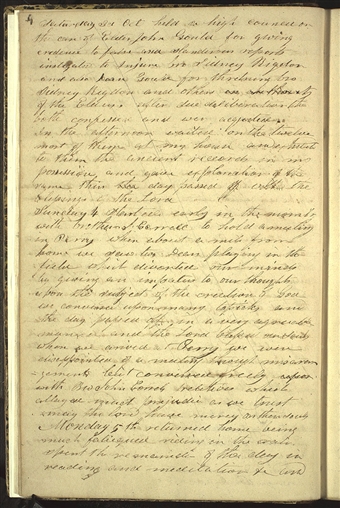 4
Saturday 3d Oct held a high council on
the case of Elder John Gould for giving
credence to false and slanderous reports
instigated to Injure bro Sidney Rigdon
and also Dean Gould for thretning bro
Sidney Rigdon and others
of the Elders after due deliberation the
both confessed and were acquited.
In the afternoon waited on the twelve
most of them at my house and exhibited
to them the ancient records in my
possession and gave explanation of the
same thus the day passed off with the
blessings of the Lord
Sunday 4 started early in the morning
with brother J Corrill to hold a meeting
in Perry when about a mile from
home we saw two Dears playing in the
field which diverted our minds
by giving an impatus to our thoughts
upon the subject of the creation of God
we conversed upon many topicks and
the day passed off in a very agreeable
manner and the Lord blessed our souls
when we arived at Perry we were
disappointed of a meeting through misarran-
gements but conversed freely upon
with Bro John Corrils relatives which
allayed much prejudice as we trust
may the lord have mercy on their souls
Monday 5th returned home being
much fatigued riding in the rain
spent the remainder of the day in
reading and meditation &c and